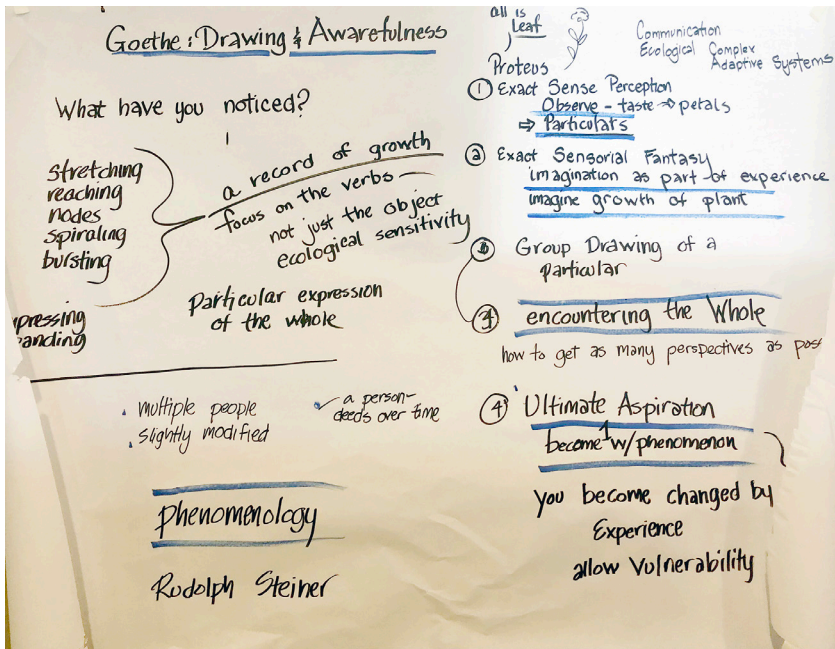 Goethe : Drawing & Awarefulness
What have you noticed?
stretching
reaching
nodes
spiraling
bursting
pressing
anding
a record of growth
focus on the verbs —
not just the object
ecological sensitivity
Particular expression
of the whole
• multiple people
• slightly modified
✓ a person-
deeds over time
Phenomenology
Rudolph Steiner
all is
Leaf
Proteus
Communication
Ecological Complex
Adaptive Systems
① Exact Sense Perception
Observe - taste → petals
⇒ Particulars
② Exact Sensorial Fantasy
imagination as part of experience
imagine growth of plant
Group Drawing of a
particular
encountering the Whole
how to get as many perspectives as poss
④ Ultimate Aspiration
become 1 w/phenomenon
you become changed by
Experience
allow Vulnerability